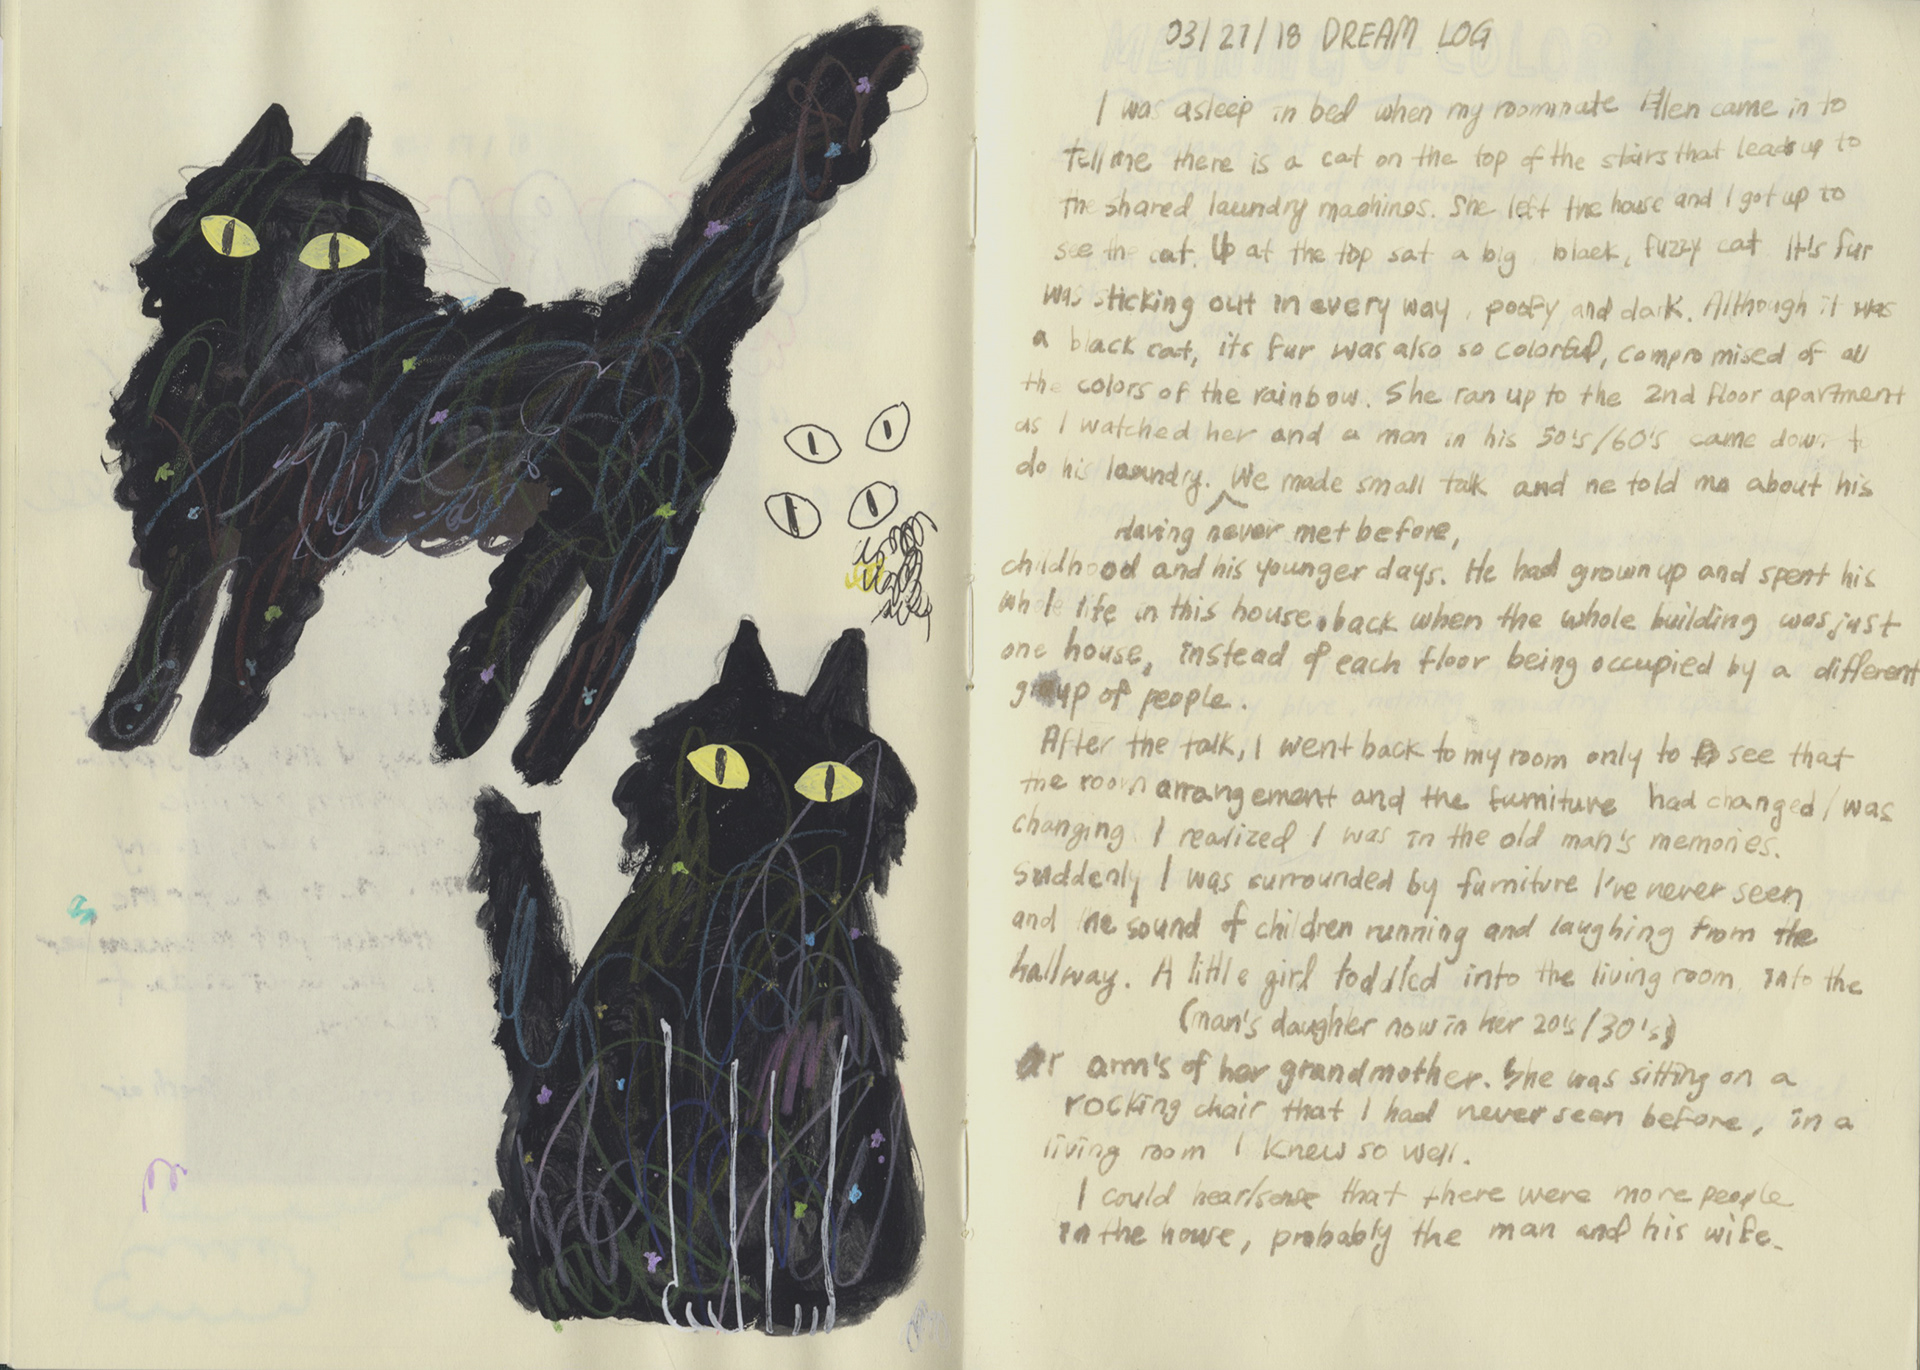 03/27/18 DREAM LOG
I was asleep in bed when my roommate Ellen came in to
tell me there is a cat on the top of the stairs that leads up to
the shared laundry machines. She left the house and I got up to
see the cat. Up at the top sat a big black, fuzzy cat. It's fur
was sticking out in every way, poofy and dark. Although it was
a black cat, its fur was also so colorful, compromised of all
the colors of the rainbow. She ran up to the 2nd floor apartment
as I watched her and a man in his 50's/60's came down t
do his laundry. We made small talk and he told me about his
Having never met before,
childhood and his younger days. He had grown up and spent his
whole life in this house, back when the whole building was just
one house, instead of each floor being occupied by a different
group of people.
After the talk, I went back to my room only to see that
the room arrangement and the furniture had changed/was
changing. I realized I was in the old man's memories.
Suddenly I was surrounded by furniture I've never seen
and the sound of children running and laughing from the
hallway. A little girl toddled into the living room, into the
(man's daughter now in her 20's/30's)
arm's of her grandmother. She was sitting on a
rocking chair that I had never seen before, in a
living room I knew so well.
I could hear/sense that there were more people
in the house, probably the man and his wife.